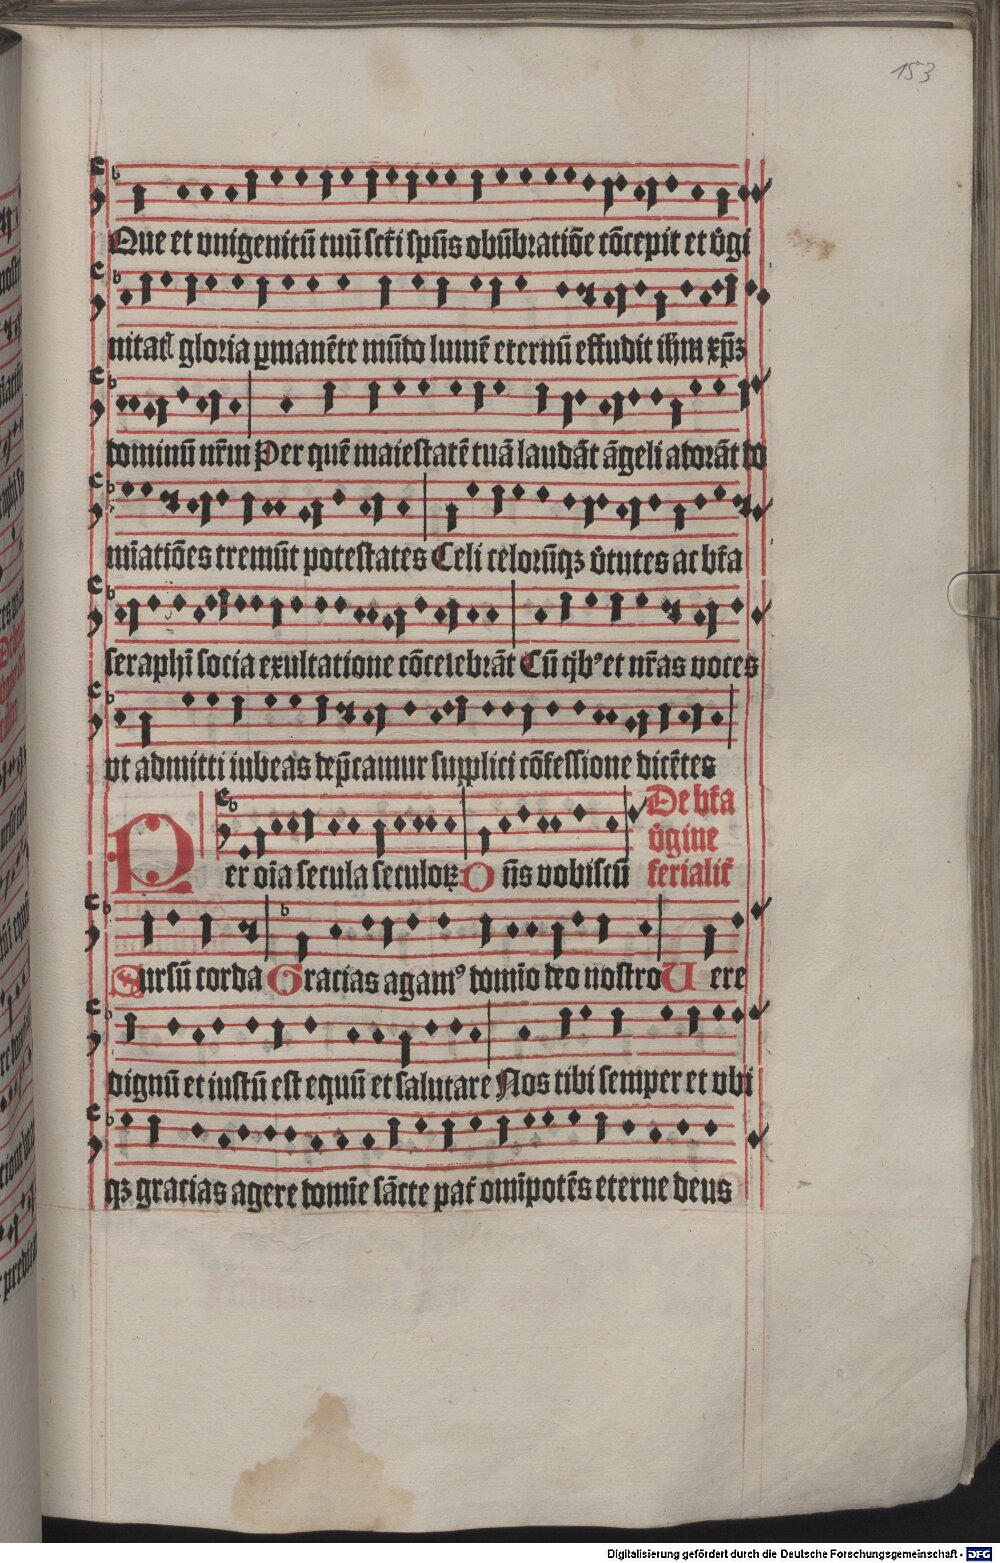 153
Que et vnigenitū tuū sct̄i spūs obūbratiōe cōcepit et v̄gi
nitat gloria ꝑmanēte mūdo lumē eternū effudit ih̄m xp̄ꝫ
dominū nr̄m Per quē maiestatē tuā laudāt āgeli adorāt do
mīatiōes tremūt potestates Celi celorūqꝫ v̄tutes ac bt̄a
seraphī socia exultatione cōcelebrāt Cū qͥbꝰ et nr̄as voces
vt admitti iubeas dep̄camur supplici cōfessione dicētes
Per oīa secula seculoꝝ Dn̄s vobiscū
De bt̄a
v̄gine
ferialit̄
Sursū corda Gracias agamꝰ domīo deo nostro Uere
dignū et iustū est equū et salutare Nos tibi semper et vbi
qꝫ gracias agere domīe sācte pat̄ omīpotēs eterne deus
Digitalisierung gefördert durch die Deutsche Forschungsgemeinschaft - DFG